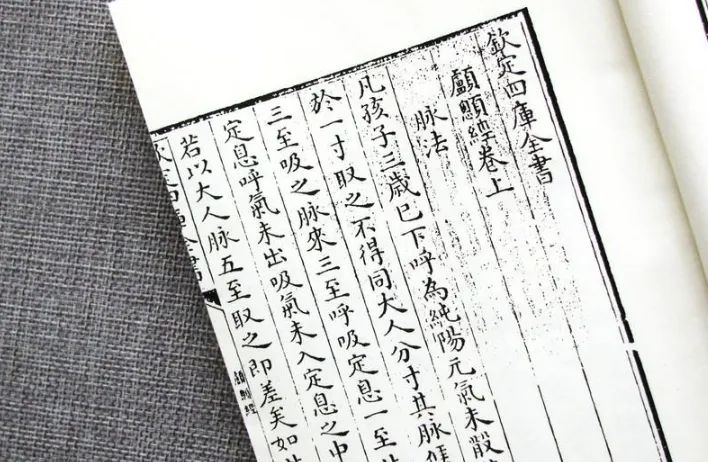 欽定四庫全書
顱顖經卷上
脉法
凡孩子三歲已下呼為純陽元氣未散
於一寸取之不得同大人分寸其脉候
三至吸之脉來三至呼吸定息一至
定息呼氣未出吸氣未入定息之中
若以大人脉五至取之即差矣如
欽定四庫全書
顱顖經